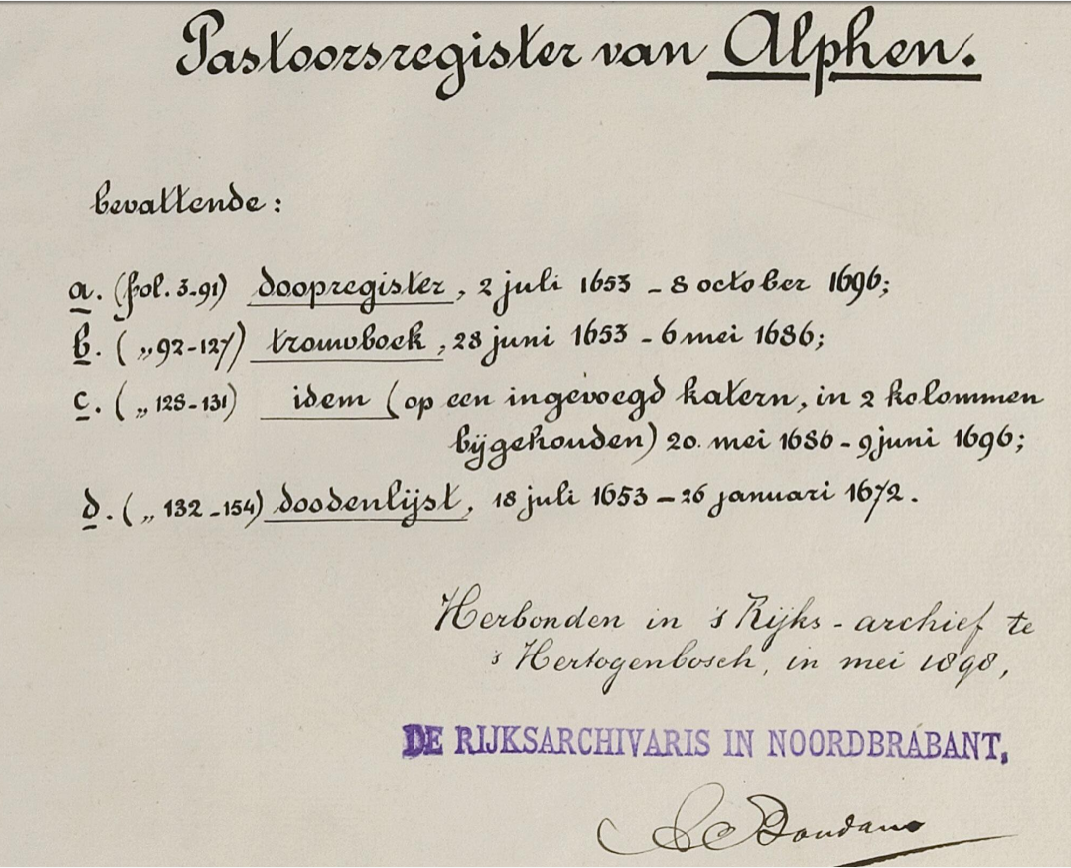 Pastoorsregister van Alphen.
bevattende:
a. (fol. 3-91) doopregister, 2 juli 1653 - 8 october 1696;
b. ( „ 92-127) trouwboek, 28 juni 1653 - 6 mei 1686;
c. ( „ 128-131) idem (op een ingevoegd katern, in 2 kolommen
bijgehouden) 20. mei 1686 - 9 juni 1696;
d. ( „ 132-154) doodenlijst, 18 juli 1653 - 26 januari 1672.
Herbonden in 's Rijks-archief te
's Hertogenbosch, in mei 1898,
DE RIJKSARCHIVARIS IN NOORDBRABANT,